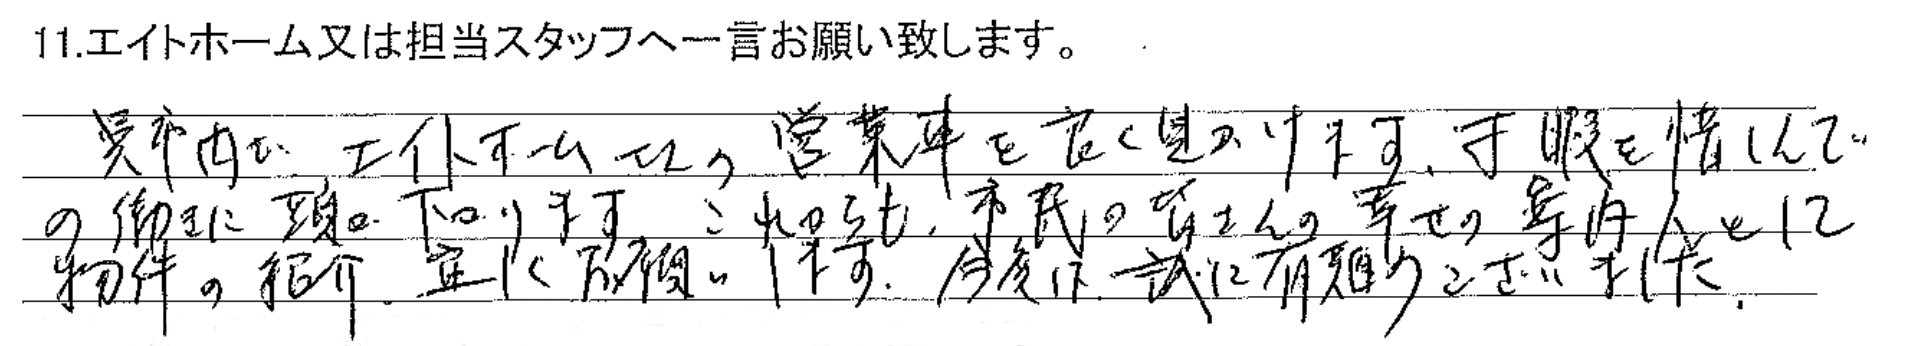 11.エイトホーム又は担当スタッフへ一言お願い致します。
呉市内で、エイトホームさんの営業車を良く見かけます。寸暇を惜しんで
の働きに頭が下がります。これからも、市民の皆さんの幸せの案内人として
物件の紹介、宜しくお願いします。今度は、誠に有難うございました。